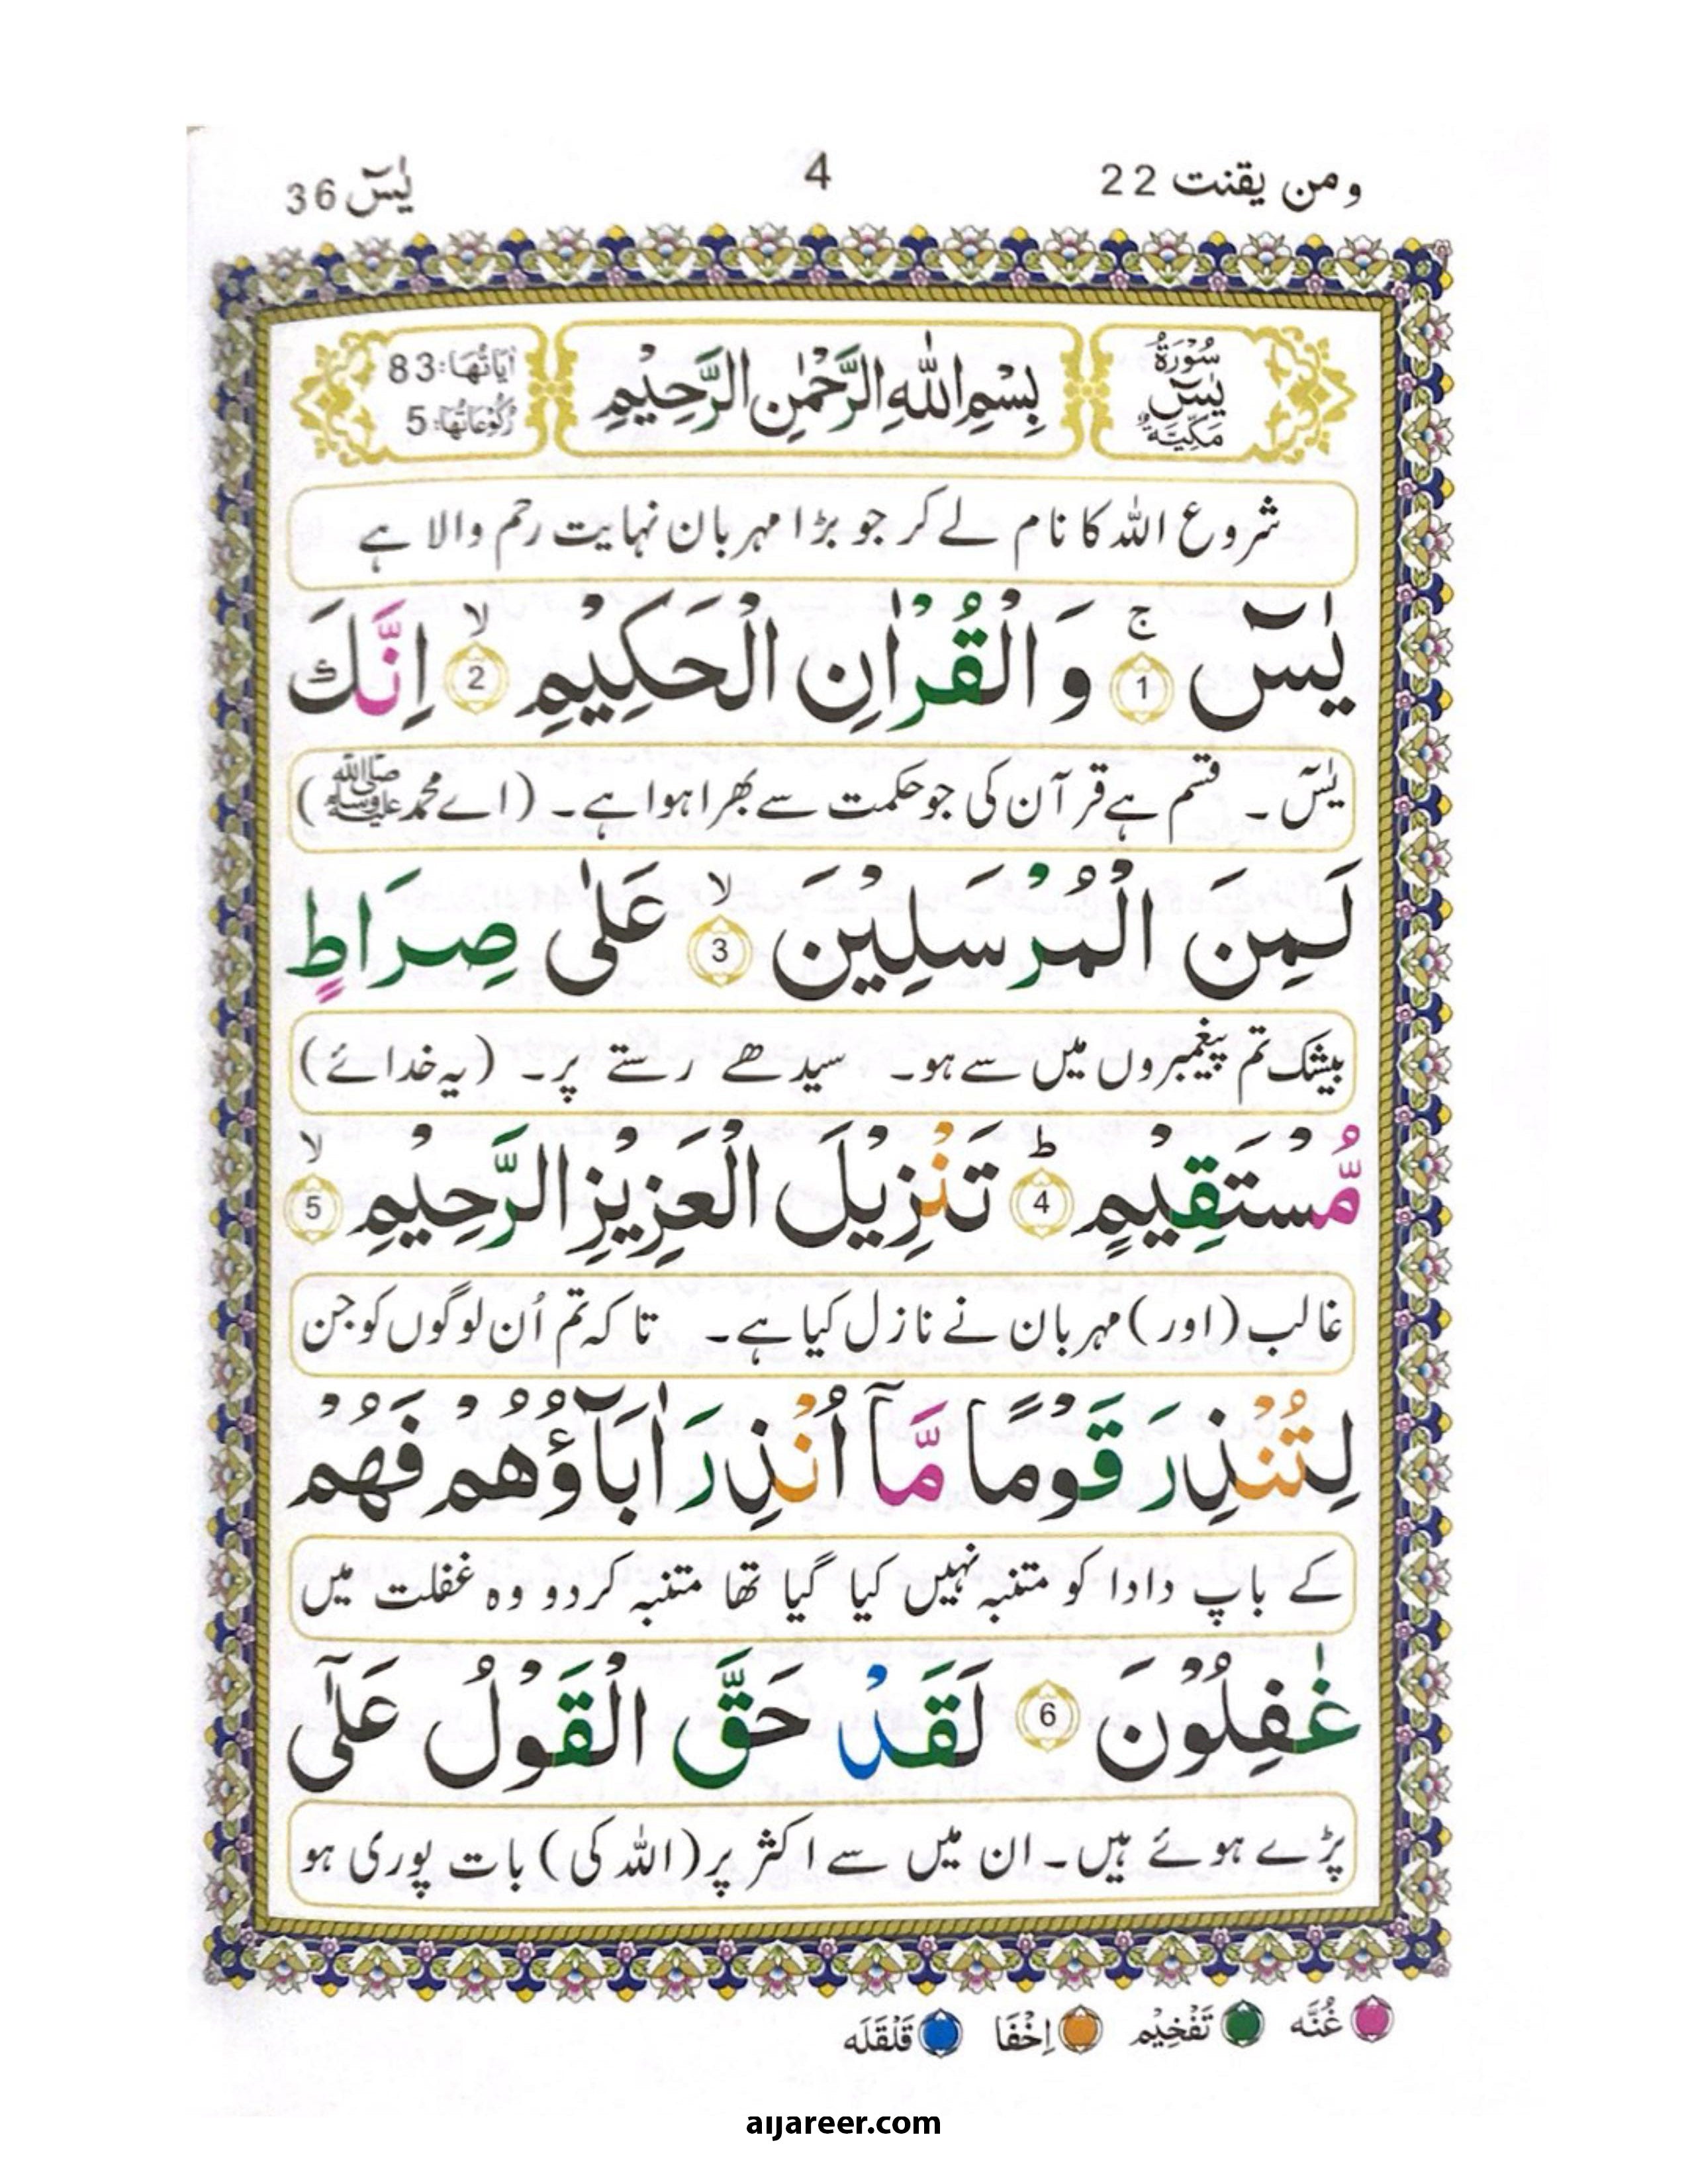 ومن يقنت 22
4
يٰسٓ 36
سُوْرَةُ
يٰسٓ
مَكِّيَّةٌ
بِسْمِ اللّٰهِ الرَّحْمٰنِ الرَّحِيْمِ
اٰيَاتُهَا: 83
رُكُوْعَاتُهَا: 5
شروع اللہ کا نام لے کر جو بڑا مہربان نہایت رحم والا ہے
يٰسٓ ۚ ﴿1﴾ وَ الْقُرْاٰنِ الْحَكِيْمِ ۙ ﴿2﴾ اِنَّكَ
یٰسٓ۔ قسم ہے قرآن کی جو حکمت سے بھرا ہوا ہے۔ (اے محمد ﷺ)
لَمِنَ الْمُرْسَلِيْنَ ۙ ﴿3﴾ عَلٰى صِرَاطٍ
بیشک تم پیغمبروں میں سے ہو۔ سیدھے رستے پر۔ (یہ خدائے)
مُّسْتَقِيْمٍ ؕ ﴿4﴾ تَنْزِيْلَ الْعَزِيْزِ الرَّحِيْمِ ۙ ﴿5﴾
غالب (اور) مہربان نے نازل کیا ہے۔ تاکہ تم اُن لوگوں کو جن
لِتُنْذِرَ قَوْمًا مَّاۤ اُنْذِرَ اٰبَآؤُهُمْ فَهُمْ
کے باپ دادا کو متنبہ نہیں کیا گیا تھا متنبہ کردو وہ غفلت میں
غٰفِلُوْنَ ﴿6﴾ لَقَدْ حَقَّ الْقَوْلُ عَلٰٓى
پڑے ہوئے ہیں۔ ان میں سے اکثر پر (اللہ کی) بات پوری ہو
غُنَّه تَفْخِيْم اِخْفَا قَلْقَلَه
aljareer.com